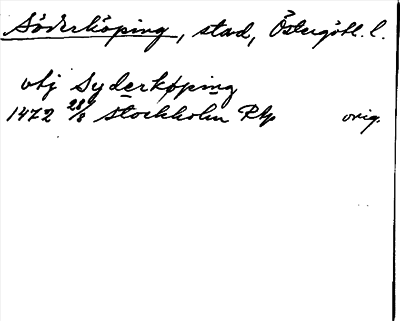 Söderköping, stad, Östergötl. l.
obj Syderköping
1472 28/8 Stockholm Rkp orig.